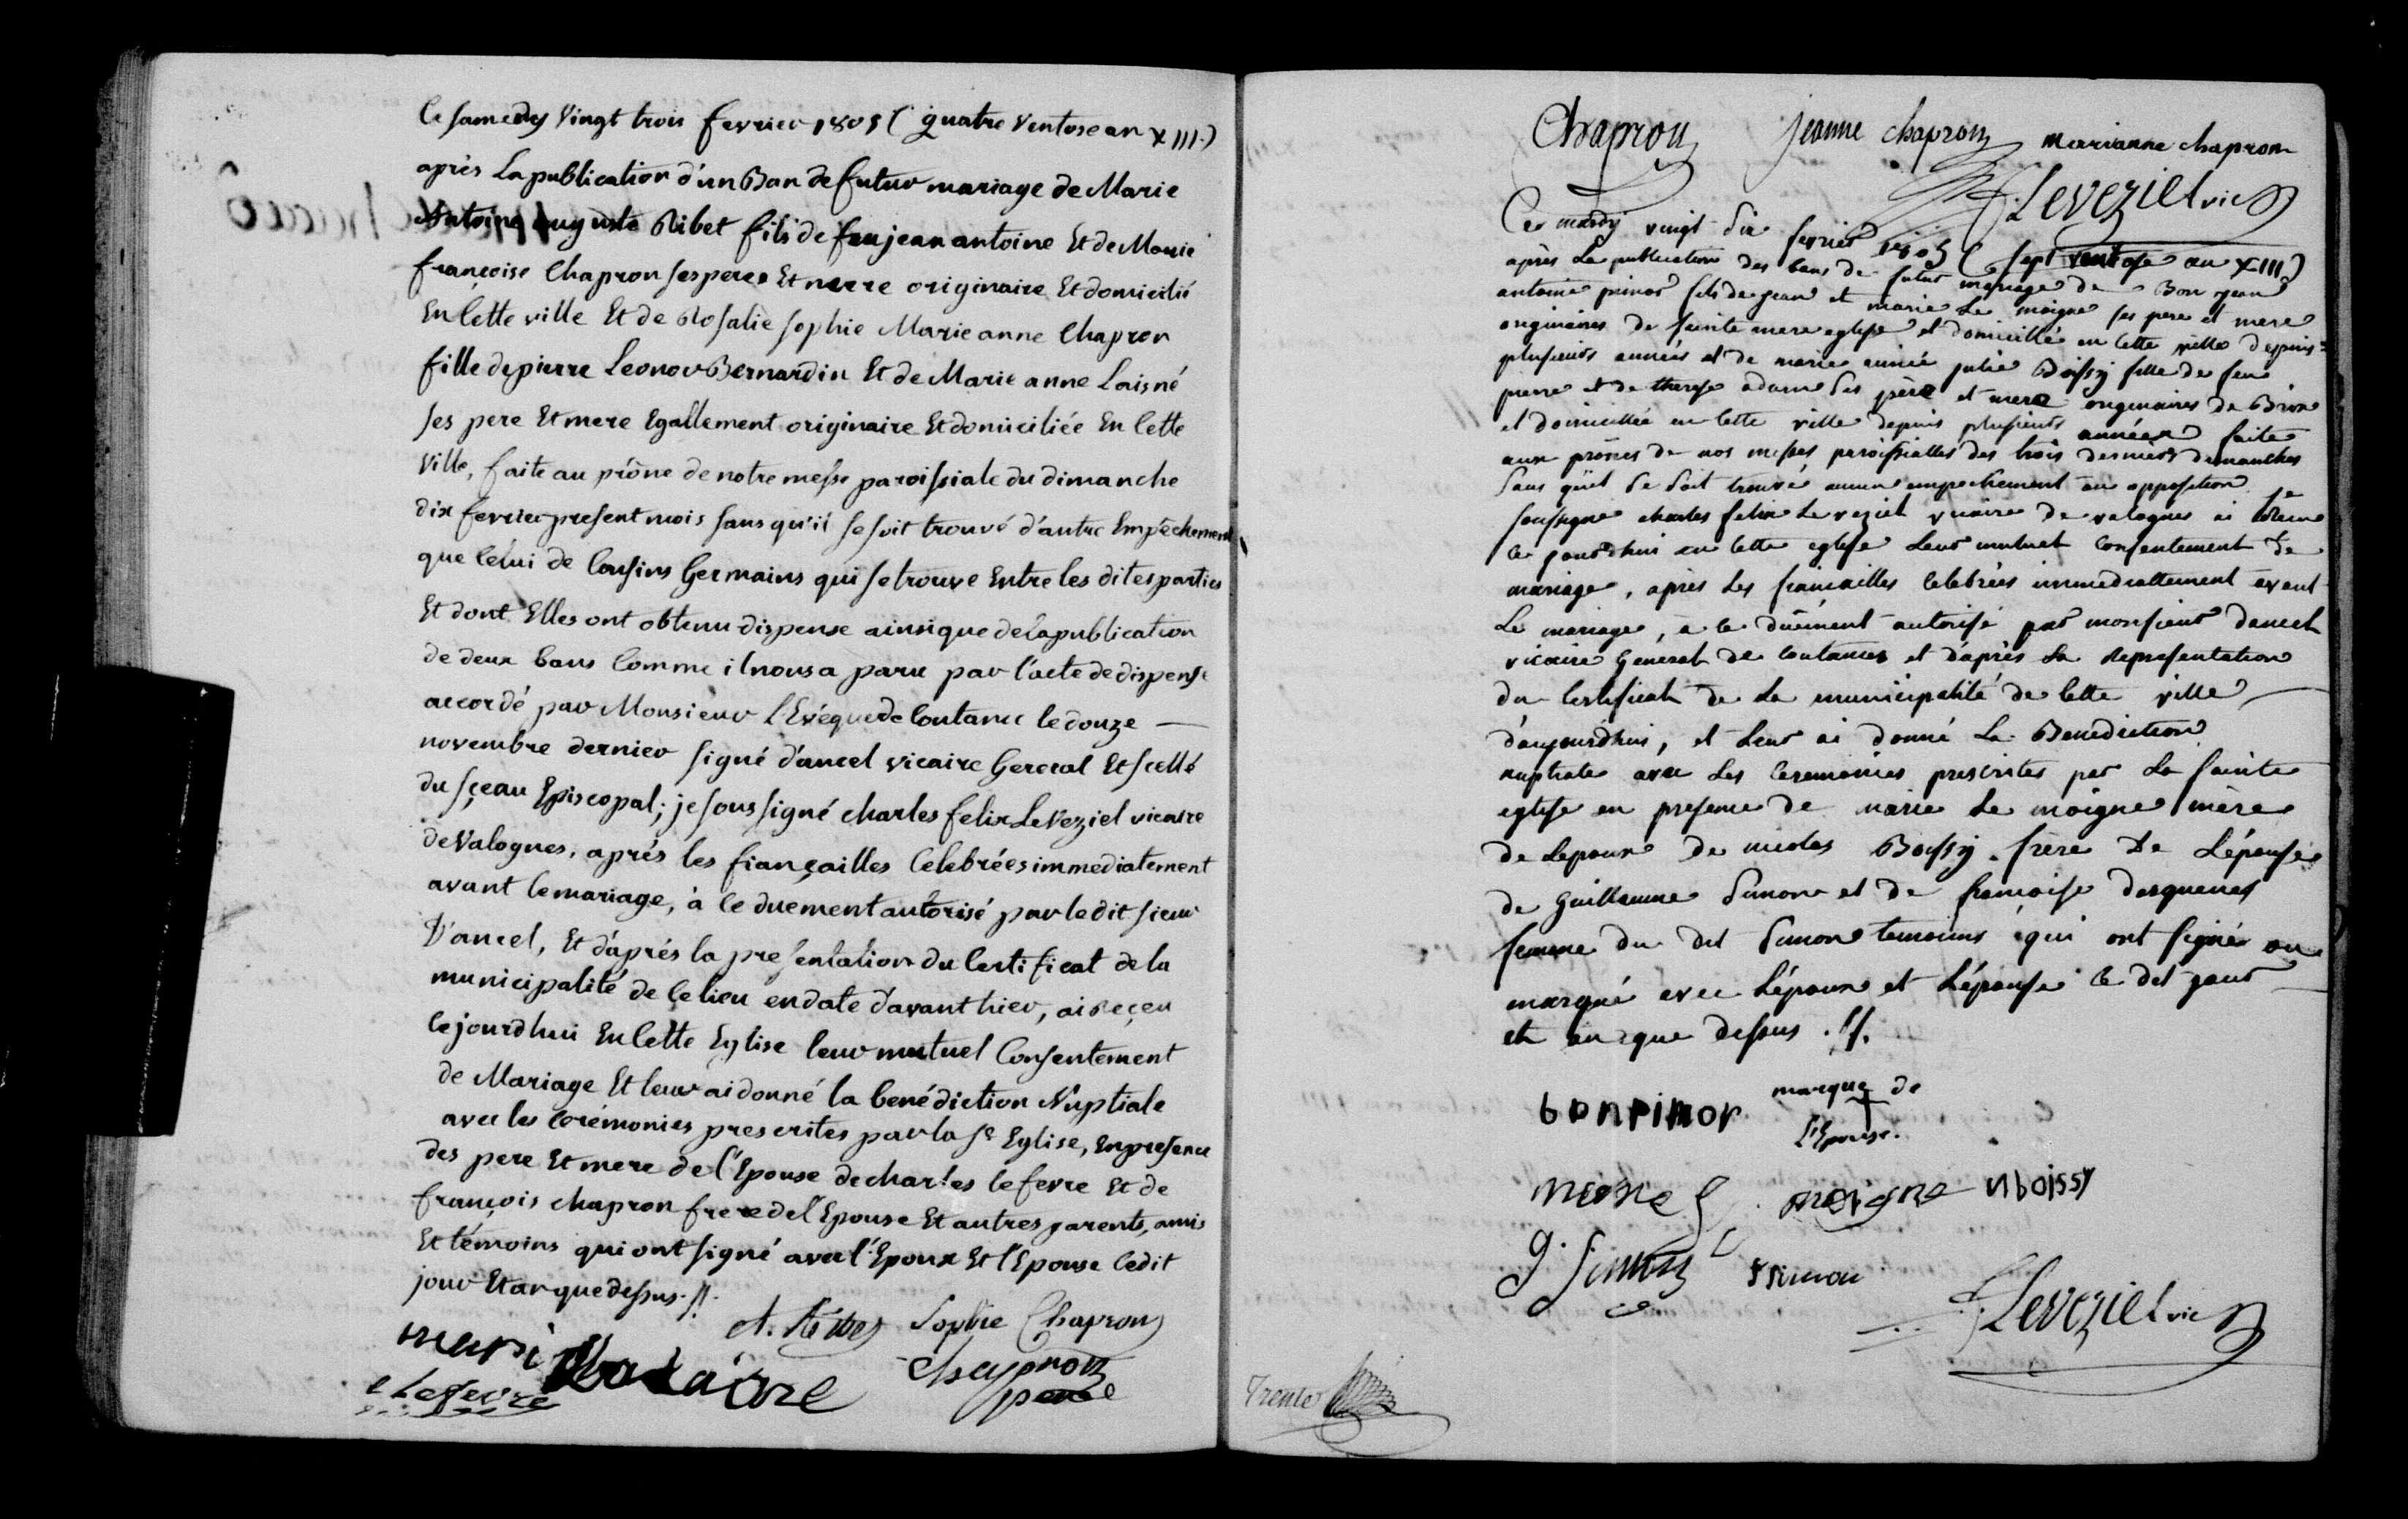 Ce samedy vingt trois fevrier 1805 (quatre ventose an XIII.)
après la publication d'un Ban de futur mariage de Marie
Antoine auguste Ribet fils de feu jean antoine Et de Marie
françoise Chapron ses pere Et mere originaire Et domicilié
En Cette ville Et de Rosalie sophie Marie anne Chapron
fille de pierre Leonor Bernardin Et de Marie anne Laisné
ses pere Et mere Egallement originaire Et domiciliée En Cette
Ville, faite au prône de notre messe paroissiale du dimanche
dix fevrier present mois sans qu'il se soit trouvé d'autre Empêchement
que Celui de Cousins Germains qui se trouve Entre les dites parties
Et dont Elles ont obtenu dispense ainsi que de la publication
de deux bans Comme il nous a paru par l'acte de dispense
accordé par Monsieur l'Evêque de Coutance le douze
novembre dernier signé d'ancel vicaire General Et scellé
du sçeau Episcopal; je soussigné charles felix Leveziel vicaire
de Valognes, aprés les fiançailles Celebrées immediatement
avant le mariage, à Ce duement autorisé par le dit sieur
D'ancel, Et d'aprés la presentation du Certificat de la
municipalité de Ce lieu en date d'avant hier, ai reçeu
Cejourdhui En Cette Eglise leur mutuel Consentement
de Mariage Et leur ai donné la benédiction Nuptiale
avec les Cerémonies prescrites par la Ste Eglise, En presence
des pere Et mere de l'Epouse de charles lefevre Et de
françois chapron frere de l'Epouse Et autres parents, amis
Et témoins qui ont signé avec l'Epoux Et l'Epouse Cedit
jour Et an que dessus.//.
A. Ribet Sophie Chapron
mari
chapron
pere
c Lefevre
Chapron jeanne chapron marianne chapron
Leveziel vic
Ce mardy vingt six fevrier 1805 (sept ventose an XIII)
après la publication des bans de futur mariage de Bon jean
antoine pinor fils de jean et marie Le moigne ses pere et mere
originaires de sainte mere eglise et domicilié en Cette ville depuis
plusieurs années et de marie aimée julie Boissy fille de feu
pierre et de therese adam ses père et mere originaires de Brix
et domiciliée en Cette ville depuis plusieurs années faite
aux prônes de nos messes paroissialles des trois derniers dimanches
sans qu'il se soit trouvé aucun empechement ou opposition
soussigné charles felix Leveziel vicaire de valognes ai
Ce jourdhui en Cette eglise leur mutuel Consentement de
mariage, après les fiancailles Celebrées immediattement avant
Le mariage, a ce duëment autorisé par monsieur dancel
vicaire General de Coutances et d'après la representation
du Certificat de la municipalité de Cette ville
d'aujourdhui, et leur ai donné la Benediction
nuptiale avec les Ceremonies prescrites par la sainte
eglise en presence de marie Le moigne mère
de Lepoux de nicolas Boissy frère de L'épouse
de Guillaume Simon et de francoise desquenes
femme du dit Simon temoins qui ont signé ou
marqué avec L'époux et L'épouse Ce dit jour
et an que dessus .//.
bonpinor marque de
l'Epouse.
moigne nboissy
g. Simon fsimon
Leveziel vic
Trente